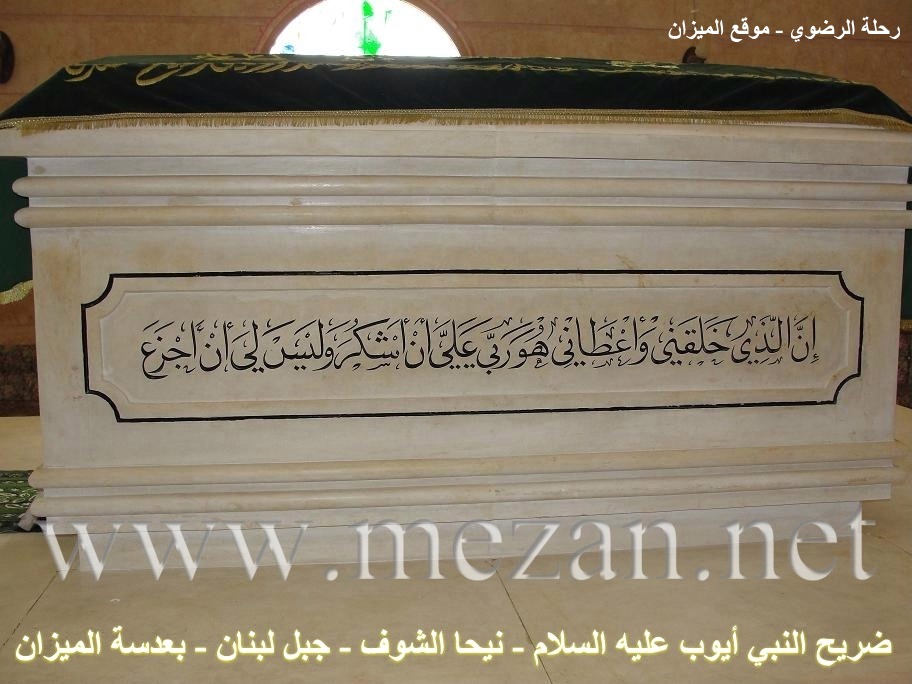 رحلة الرضوي - موقع الميزان
إِنَّ الَّذِي خَلَقَنِي وَأَعْطَانِي هُوَ رَبِّي عَلَيَّ أَنْ أَشْكُرَ وَلَيْسَ لِي أَنْ أَجْزَعَ
www.mezan.net
ضريح النبي أيوب عليه السلام - نيحا الشوف - جبل لبنان - بعدسة الميزان